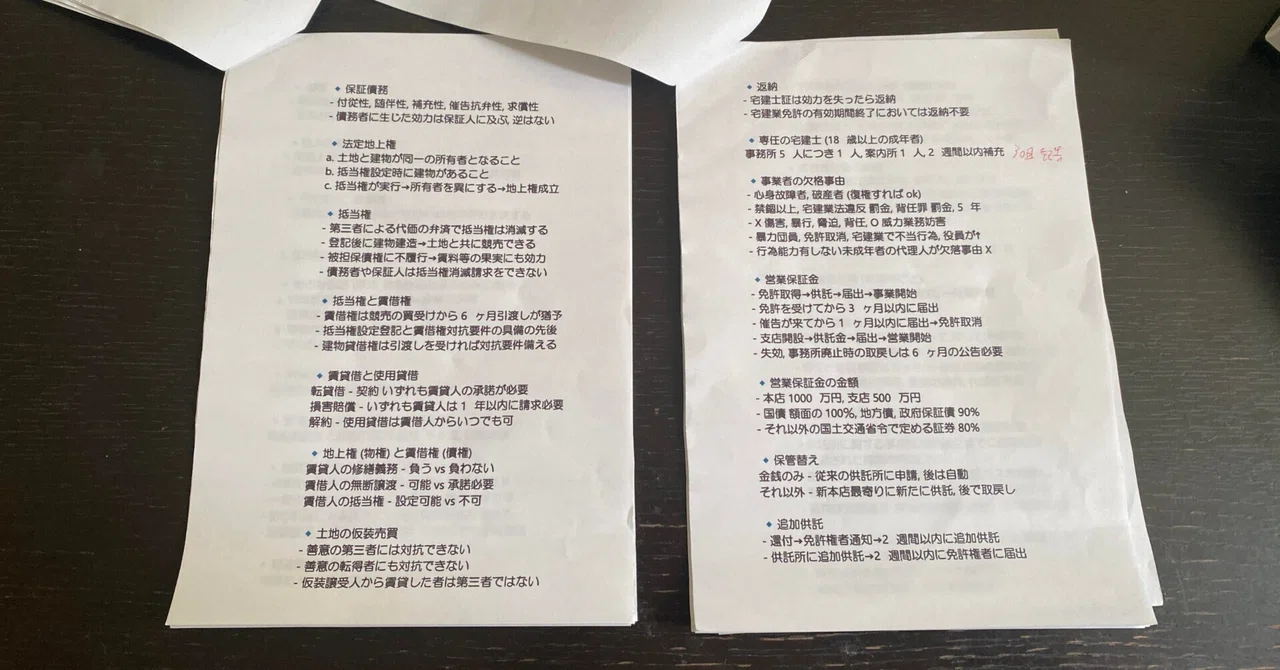 ◆ 保証債務
- 付従性, 随伴性, 補充性, 催告抗弁性, 求償性
- 債務者に生じた効力は保証人に及ぶ, 逆はない
◆ 法定地上権
a. 土地と建物が同一の所有者となること
b. 抵当権設定時に建物があること
c. 抵当権が実行→所有者を異にする→地上権成立
◆ 抵当権
- 第三者による代価の弁済で抵当権は消滅する
- 登記後に建物建造→土地と共に競売できる
- 被担保債権に不履行→賃料等の果実にも効力
- 債務者や保証人は抵当権消滅請求をできない
◆ 抵当権と賃借権
- 賃借権は競売の買受けから6 ヶ月引渡しが猶予
- 抵当権設定登記と賃借権対抗要件の具備の先後
- 建物賃借権は引渡しを受ければ対抗要件備える
◆ 賃貸借と使用貸借
転貸借 - 契約 いずれも賃貸人の承諾が必要
損害賠償 - いずれも賃貸人は1 年以内に請求必要
解約 - 使用貸借は賃借人からいつでも可
◆ 地上権 (物権) と賃借権 (債権)
賃貸人の修繕義務 - 負う vs 負わない
賃借人の無断譲渡 - 可能 vs 承諾必要
賃借人の抵当権 - 設定可能 vs 不可
◆ 土地の仮装売買
- 善意の第三者には対抗できない
- 善意の転得者にも対抗できない
- 仮装譲受人から賃貸した者は第三者ではない
◆ 返納
- 宅建士証は効力を失ったら返納
- 宅建業免許の有効期間終了においては返納不要
◆ 専任の宅建士 (18 歳以上の成年者)
事務所5 人につき1 人, 案内所1 人, 2 週間以内補充
◆ 事業者の欠格事由
- 心身故障者, 破産者 (復権すれば ok)
- 禁錮以上, 宅建業法違反 罰金, 背任罪 罰金, 5 年
- X 傷害, 暴行, 脅迫, 背任, O 威力業務妨害
- 暴力団員, 免許取消, 宅建業で不当行為, 役員が↑
- 行為能力有しない未成年者の代理人が欠落事由 X
◆ 営業保証金
- 免許取得→供託→届出→事業開始
- 免許を受けてから3 ヶ月以内に届出
- 催告が来てから1 ヶ月以内に届出→免許取消
- 支店開設→供託金→届出→営業開始
- 失効, 事務所廃止時の取戻しは6 ヶ月の公告必要
◆ 営業保証金の金額
- 本店1000 万円, 支店500 万円
- 国債 額面の100%, 地方債, 政府保証債90%
- それ以外の国土交通省令で定める証券80%
◆ 保管替え
金銭のみ - 従来の供託所に申請, 後は自動
それ以外 - 新本店最寄りに新たに供託, 後で取戻し
◆ 追加供託
- 還付→免許権者通知→2 週間以内に追加供託
- 供託所に追加供託→2 週間以内に免許権者に届出